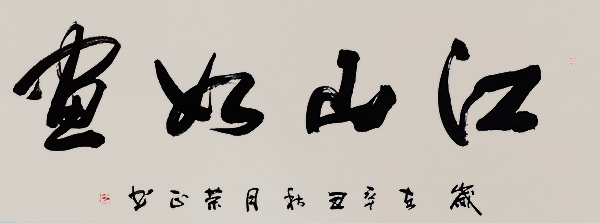 江山如画
歲在辛丑秋月荣正书